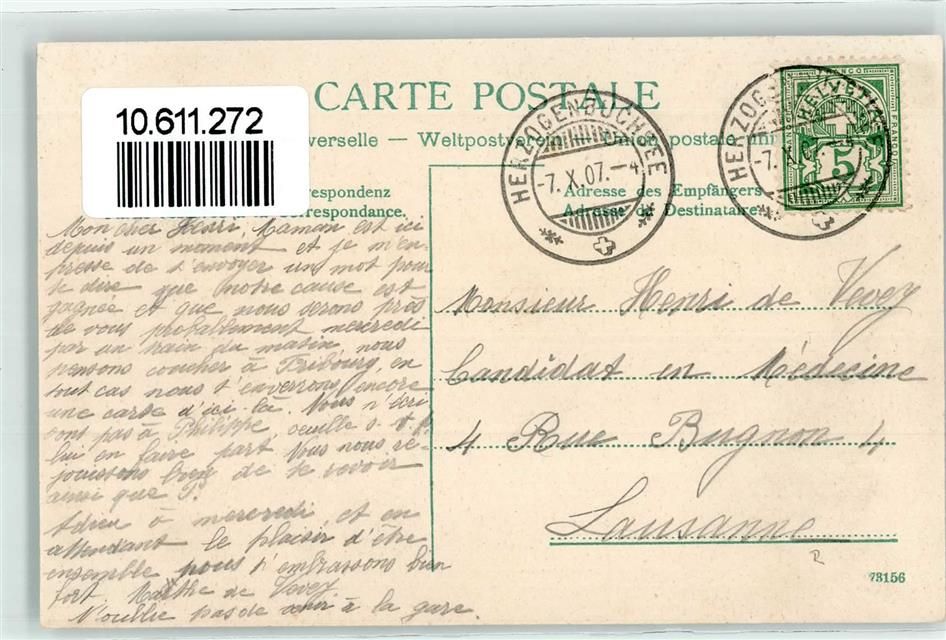 10.611.272
CARTE POSTALE
verselle – Weltpostverein – Union postale uni
HERZOGENBUCHSEE
-7. X. 07.-4
HERZOG
-7. X. 0
HELVETIA
FRANCO
5
respondenz
orrespondance.
Adresse des Empfängers
Adresse du Destinataire
Mon cher Henri, Maman est ici
depuis un moment et je m'em-
presse de t'envoyer un mot pour
te dire que notre cause est
gagnée et que nous serons près
de vous probablement mercredi
par un train du matin, nous
pensons coucher à Fribourg, en
tout cas nous t'enverrons encore
une carte d'ici là. Nous n'écri
vons pas à Philippe veuille s. t. p.
lui en faire part. Nous nous ré-
jouissons bien de te revoir
ainsi que P.
Adieu à mercredi et en
attendant le plaisir d'être
ensemble nous t'embrassons bien
fort. Marthe de Vevey
N'oublie pas de venir à la gare.
Monsieur Henri de Vevey
Candidat en Médecine
4 Rue Bugnon 4
Lausanne
73156